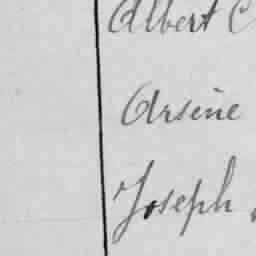 Albert C
Arsène
Joseph